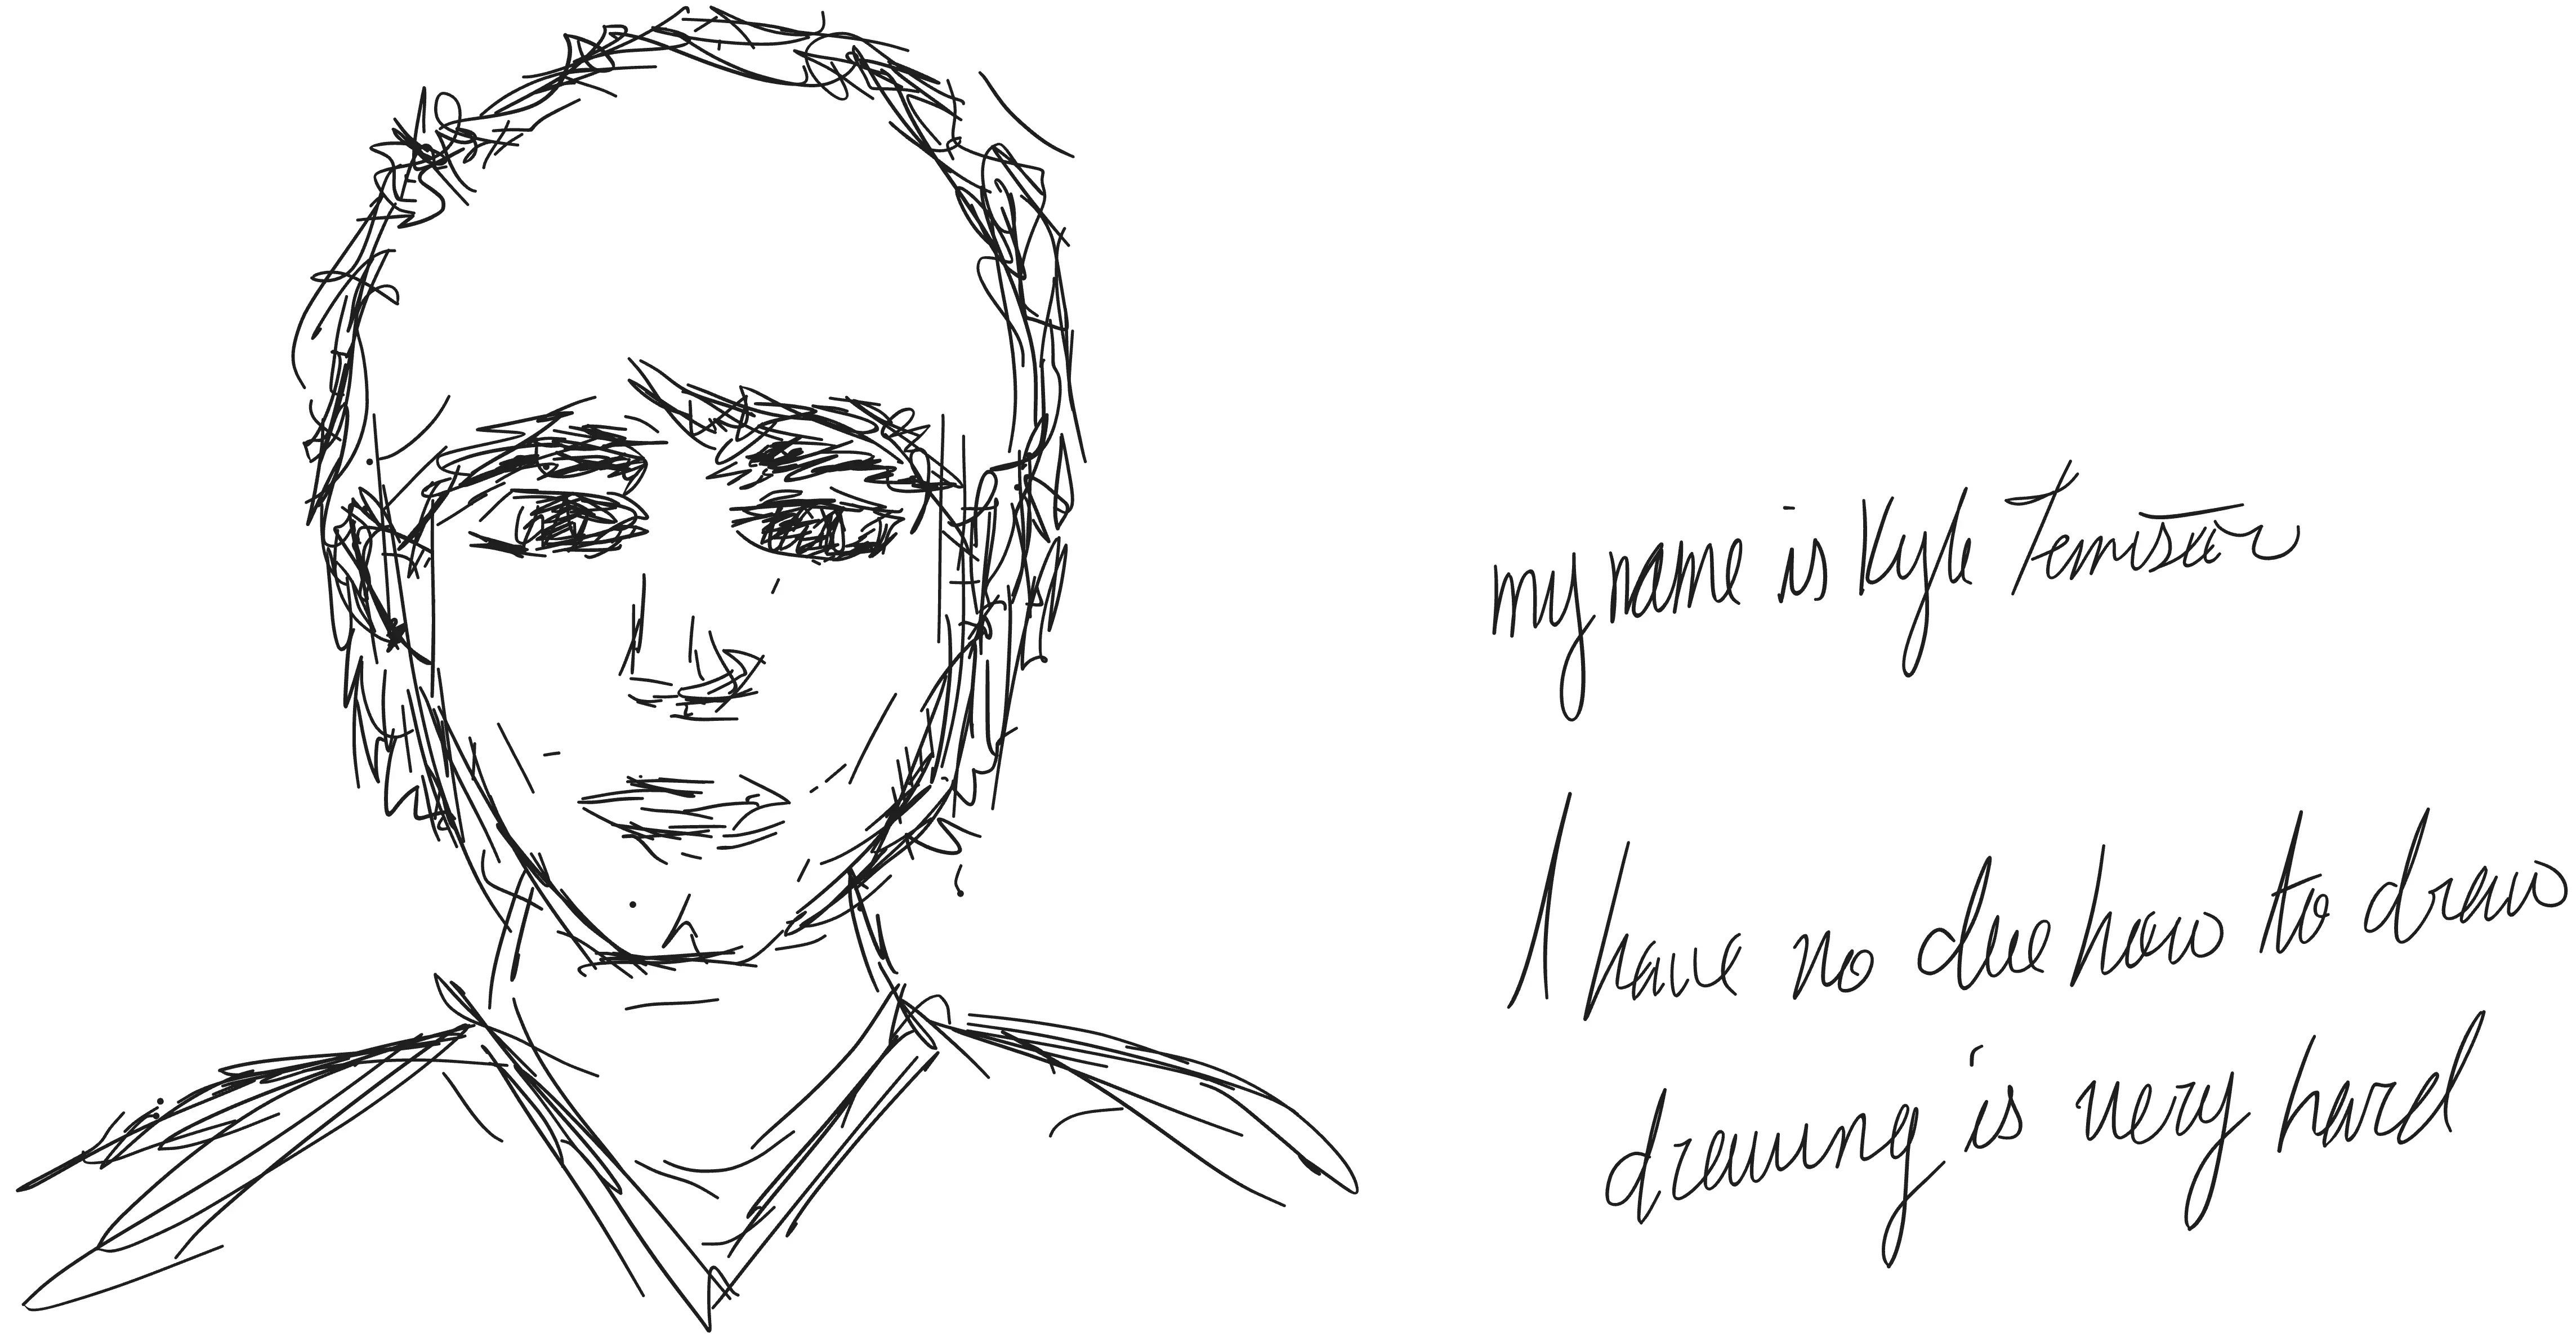 my name is Kyle
I have no clue how to draw
drawing is very hard